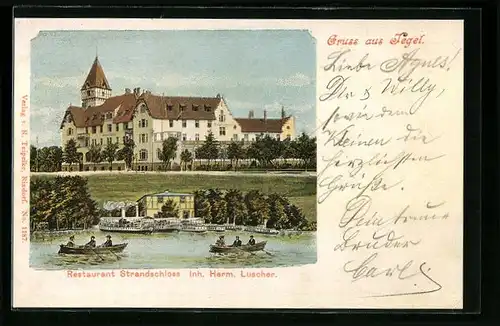 Gruss aus Tegel.
Liebe Agnes!
Dir & Willy,
sowie dem
Kleinen die
herzlichsten
Grüße.
Dein treuer
Bruder
Carl.
Restaurant Strandschloss Inh. Herm. Luscher.
Verlag v. R. Rixdorf. No. 1187.